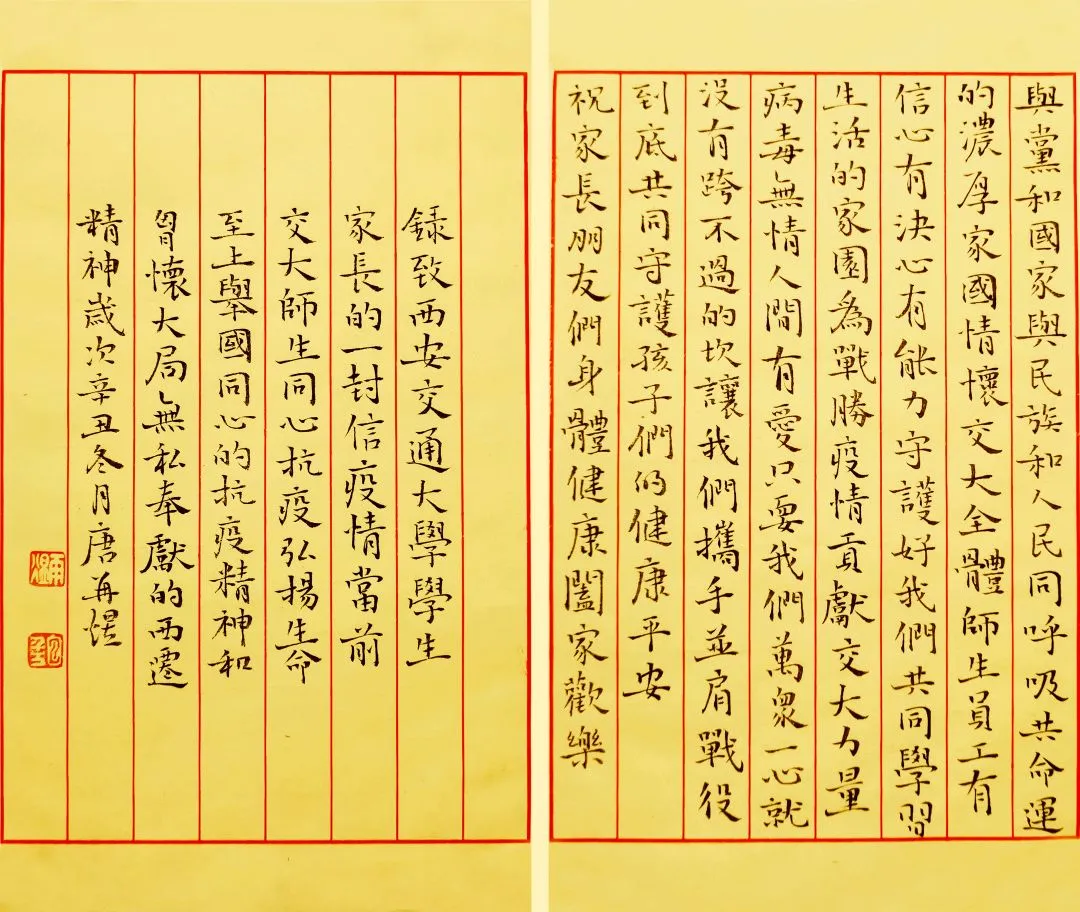 與黨和國家與民族和人民同呼吸共命運
的濃厚家國情懷交大全體師生員工有
信心有決心有能力守護好我們共同學習
生活的家園為戰勝疫情貢獻交大力量
病毒無情人間有愛只要我們萬眾一心就
沒有跨不過的坎讓我們攜手並肩戰役
到底共同守護孩子們的健康平安
祝家長朋友們身體健康闔家歡樂
錄致西安交通大學學生
家長的一封信疫情當前
交大師生同心抗疫弘揚生命
至上舉國同心的抗疫精神和
胷懷大局無私奉獻的西遷
精神歲次辛丑冬月唐再煜